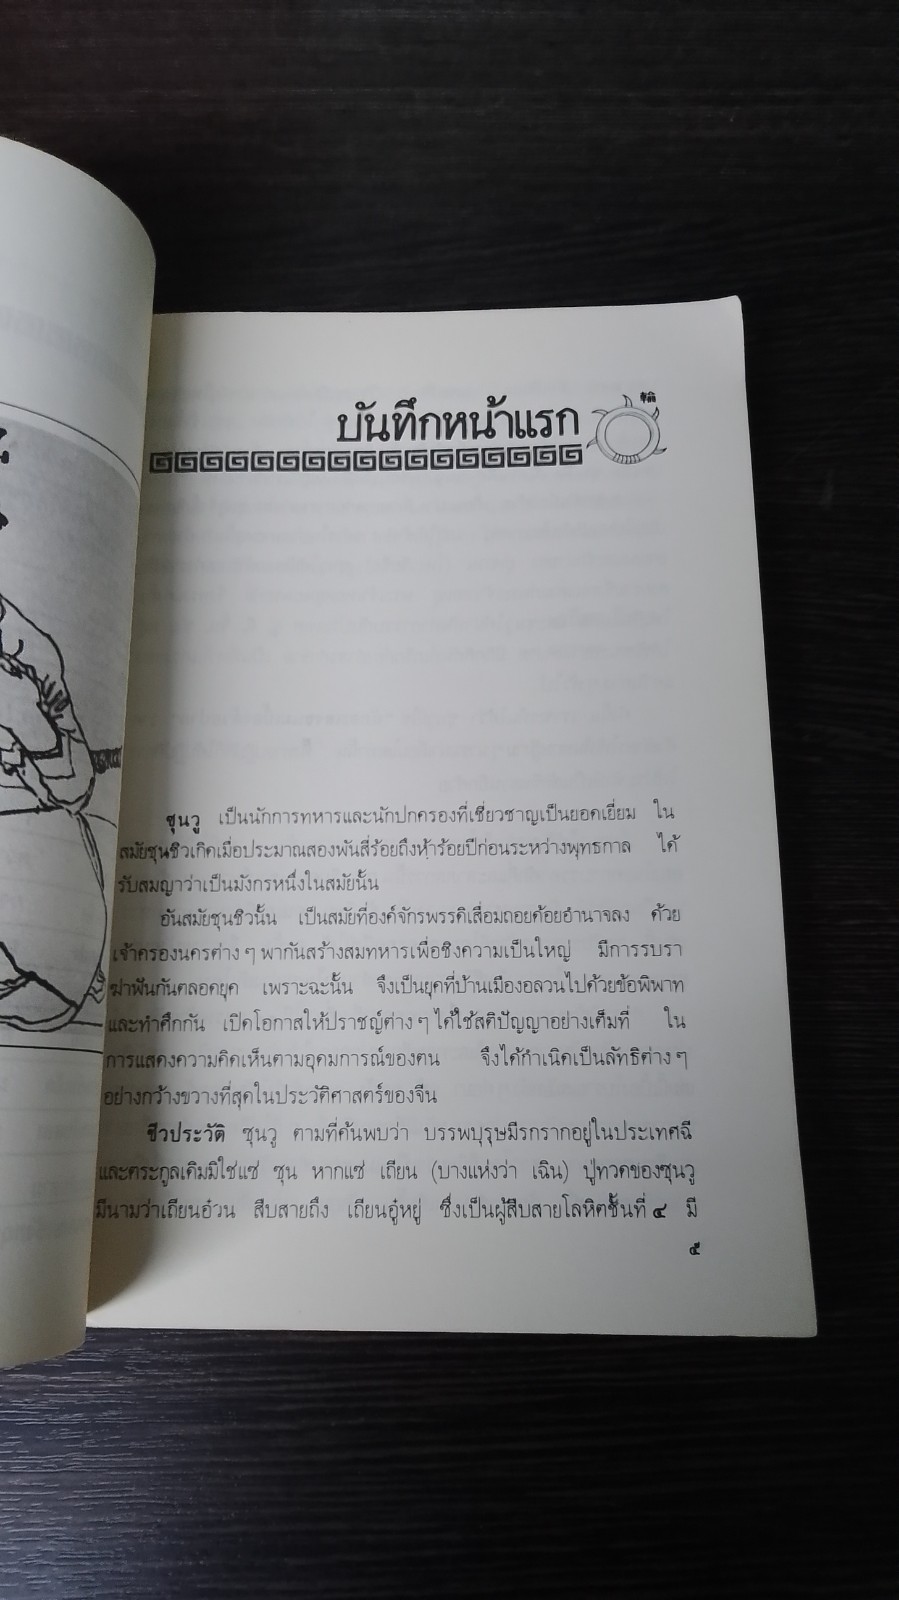 บันทึกหน้าแรก
輪
ซุนวู เป็นนักการทหารและนักปกครองที่เชี่ยวชาญเป็นยอดเยี่ยม ใน
สมัยชุนชิวเกิดเมื่อประมาณสองพันสี่ร้อยถึงห้าร้อยปีก่อนระหว่างพุทธกาล ได้
รับสมญาว่าเป็นมังกรหนึ่งในสมัยนั้น
อันสมัยชุนชิวนั้น เป็นสมัยที่องค์จักรพรรดิเสื่อมถอยด้อยอำนาจลง ด้วย
เจ้าครองนครต่าง ๆ พากันสร้างสมทหารเพื่อชิงความเป็นใหญ่ มีการรบรา
ฆ่าฟันกันตลอดยุค เพราะฉะนั้น จึงเป็นยุคที่บ้านเมืองอลวนไปด้วยข้อพิพาท
และทำศึกกัน เปิดโอกาสให้ปราชญ์ต่าง ๆ ได้ใช้สติปัญญาอย่างเต็มที่ ใน
การแสดงความคิดเห็นตามอุดมการณ์ของตน จึงได้กำเนิดเป็นลัทธิต่าง ๆ
อย่างกว้างขวางที่สุดในประวัติศาสตร์ของจีน
ชีวประวัติ ซุนวู ตามที่ค้นพบว่า บรรพบุรุษมีรกรากอยู่ในประเทศฉี
และตระกูลเดิมมิใช่แซ่ ซุน หากแซ่ เถียน (บางแห่งว่า เฉิน) ปู่ทวดของซุนวู
มีนามว่าเถียนอ๋วน สืบสายถึง เถียนอู๋หยู่ ซึ่งเป็นผู้สืบสายโลหิตชั้นที่ ๔ มี
๕